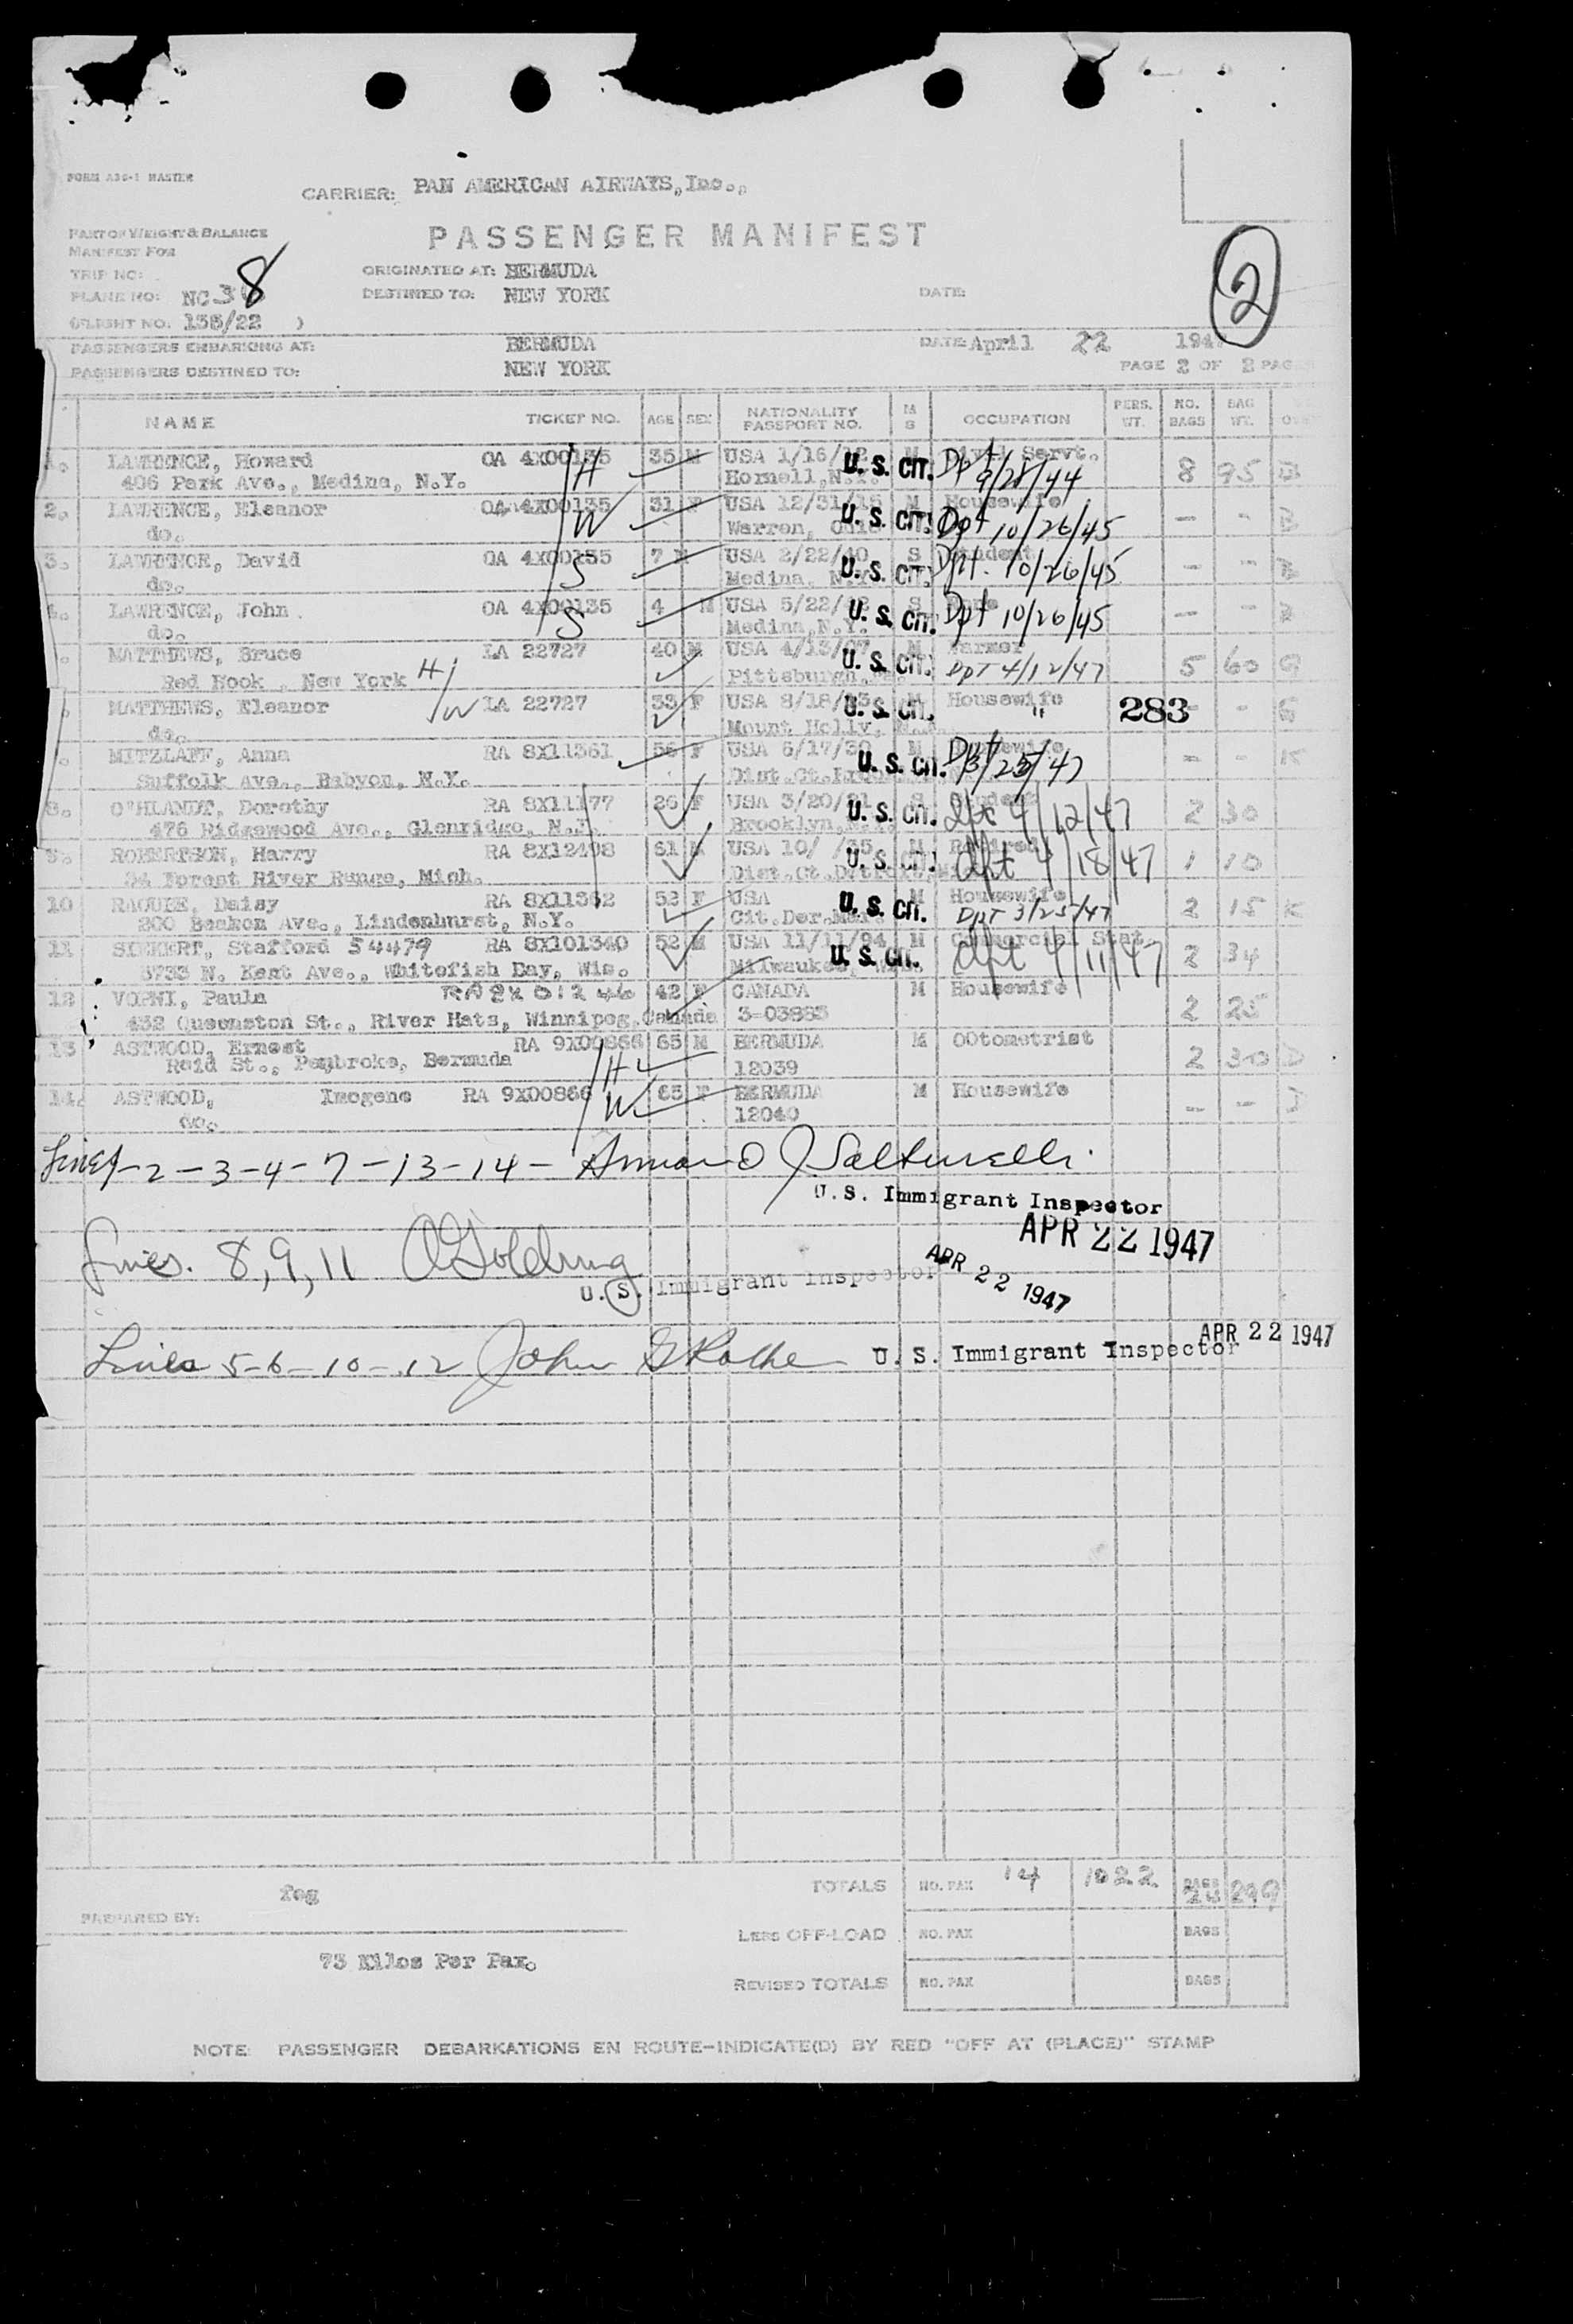 FORM A36-1 MASTER
CARRIER: PAN AMERICAN AIRWAYS, Inc.,
PART OF WEIGHT & BALANCE
MANIFEST FOR
PASSENGER MANIFEST
2
TRIP NO:
ORIGINATED AT: BERMUDA
PLANE NO: NC 8
DESTINED TO: NEW YORK
DATE:
(FLIGHT NO. 158/22 )
PASSENGERS EMBARKING AT: BERMUDA DATE April 22 194
PASSENGERS DESTINED TO: NEW YORK PAGE 2 OF 2 PAG
NAME TICKET NO. AGE SEX NATIONALITY PASSPORT NO. M S OCCUPATION PERS. WT. NO. BAGS BAG WT.
LAWRENCE, Howard OA 4X00135 H 35 M USA 1/16/12 U.S. CIT. M Civil Servt. Dpt 9/28/44 8 95 B
406 Park Ave., Medina, N.Y. Hornell, N.Y.
2. LAWRENCE, Eleanor OA 4X00135 W 31 F USA 12/31/15 U.S. CIT. M Housewife Dpt 10/26/45 - - B
do. Warren, Ohio
3. LAWRENCE, David OA 4X00135 S 7 M USA 2/22/40 U.S. CIT. S Student Dpt. 10/26/45 - - B
do. Medina, N.Y.
LAWRENCE, John OA 4X00135 S 4 M USA 5/22/42 U.S. CIT. S None Dpt 10/26/45 - - B
do. Medina, N.Y.
MATTHEWS, Bruce LA 22727 40 M USA 4/13/07 U.S. CIT. M Farmer DPT 4/12/47 5 60 G
Red Hook , New York H Pittsburgh,
MATTHEWS, Eleanor W LA 22727 33 F USA 8/18/13 U.S. CIT. M Housewife " 283 - - G
do. Mount Holly,
MITZLAFF, Anna RA 8X11361 56 F USA 6/17/30 U.S. CIT. M Housewife Dpt 3/25/47 - - K
Suffolk Ave., Babyon, N.Y. Dist.Ct.
8. O'HLANDT, Dorothy RA 8X11177 26 F USA 3/20/21 U.S. CIT. S Student Dpt 4/12/47 2 30
476 Ridgewood Ave., Glenridge, N.J. Brooklyn, N.Y.
9. ROBERTSON, Harry RA 8X12498 61 M USA 10/ /35 U.S. CIT. M Retired Dpt 4/18/47 1 10
34 Forest River Range, Mich. Dist.Ct.Detroit,
10 RAQUIE, Daisy RA 8X11362 52 F USA U.S. CIT. M Housewife DPT 3/25/47 2 15 K
200 Beakon Ave., Lindenhurst, N.Y. Cit.Der.Mar.
11 SIEKERT, Stafford 54479 RA 8X101340 52 M USA 11/11/94 U.S. CIT. M Commercial Stat. Dpt 4/11/47 2 34
5733 N. Kent Ave., Whitefish Bay, Wis. Milwaukee, Wis.
12 VOPNI, Paula RA 8X01246 42 F CANADA M Housewife 2 25
432 Queenston St., River Hats, Winnipeg, Canada 3-03883
13 ASTWOOD, Ernest RA 9X00866 H 65 M BERMUDA M OOtometrist 2 30 D
Reid St., Pembroke, Bermuda 12039
14. ASTWOOD, Imogene RA 9X00866 W 65 F BERMUDA M Housewife - - D
do. 12040
Lines 1-2-3-4-7-13-14- Armand J. Salturelli
U.S. Immigrant Inspector
APR 22 1947
Lines. 8, 9, 11 O Goldring
U. S. Immigrant Inspector
APR 22 1947
Lines 5-6-10-12 John G Rothe U. S. Immigrant Inspector APR 22 1947
TOTALS NO. PAX 14 1022 BAGS 24 299
feg
PREPARED BY:
LESS OFF-LOAD NO. PAX BAGS
73 Kilos Per Pax.
REVISED TOTALS NO. PAX BAGS
NOTE: PASSENGER DEBARKATIONS EN ROUTE-INDICATE(D) BY RED "OFF AT (PLACE)" STAMP